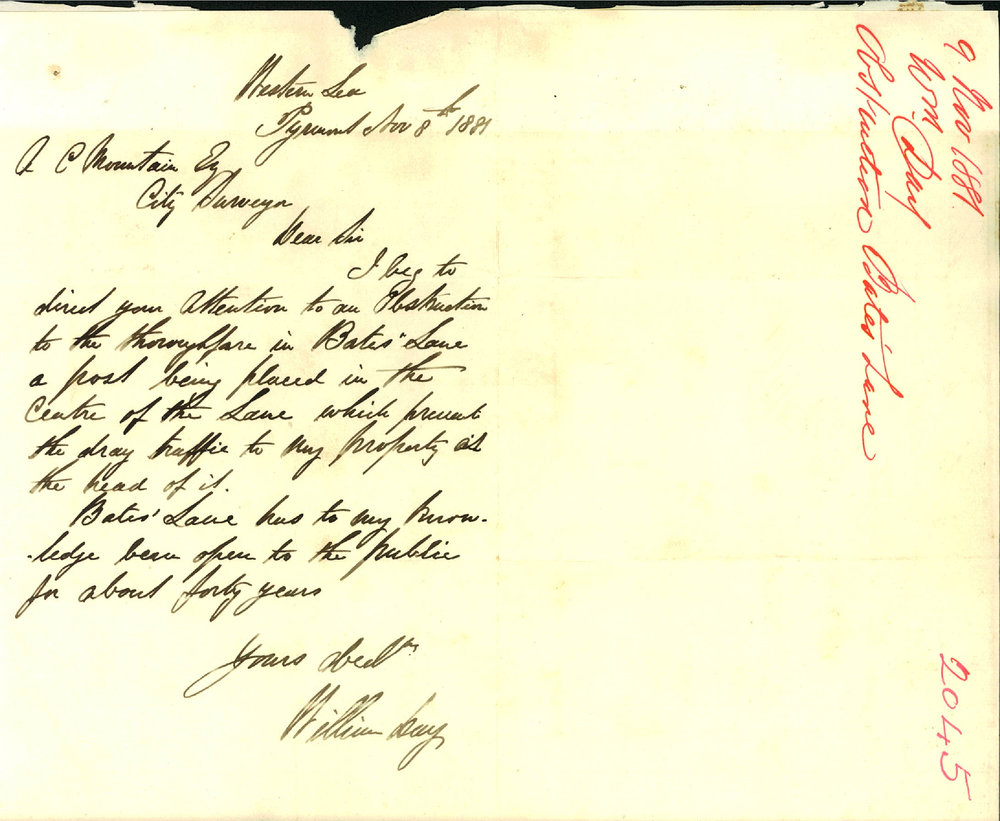 Western Lea
Pyrmont Nov 8th 1881
A C Mountain Esq
City Surveyor
Dear Sir
I beg to
direct your Attention to an Obstruction
to the thoroughfare in Bates' Lane
a post being placed in the
Centre of the Lane which prevents
the dray traffic to my property at
the head of it.
Bates' Lane has to my know-
-ledge been open to the public
for about forty years
Yours
William Day
9. Nov 1881
Wm. Day
Obstruction Bates' Lane
2045